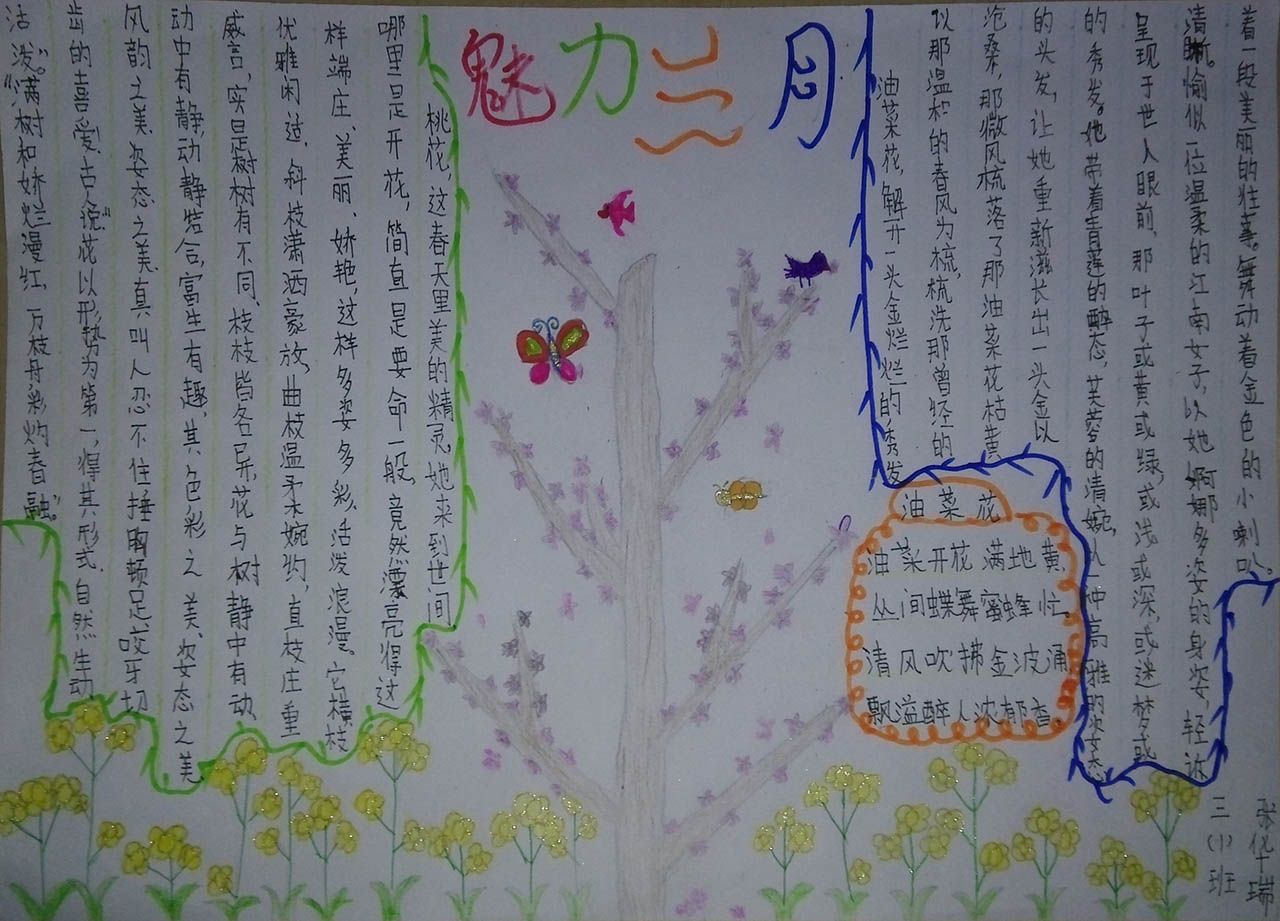 魅力三月
桃花,这春天里美的精灵,她来到世间,
哪里是开花,简直是要命一般,竟然漂亮得这
样端庄、美丽、娇艳,这样多姿多彩,活泼浪漫。它横枝
优雅闲适,斜枝潇洒豪放,曲枝温柔婉约,直枝庄重
威言,实是树树有不同,枝枝皆各异,花与树静中有动、
动中有静,动静结合,富生有趣,其色彩之美、姿态之美
风韵之美、姿态之美,真叫人忍不住捶胸顿足咬牙切
齿的喜爱,古人说:“花以形势为第一,得其形式,自然生动
活泼”。“满树和娇烂漫红,万枝丹彩灼春融。”
油菜花,解开一头金烂烂的秀发
以那温和的春风为梳,梳洗那曾经的
沧桑,那微风梳落了那油菜花枯黄
的头发,让她重新滋长出一头金以
的秀发。她带着青莲的醉态,芙蓉的清婉,以一种高雅的姿态
呈现于世人眼前,那叶子或黄或绿,或浅或深,或迷梦或
清晰。愉似一位温柔的江南女子,以她婀娜多姿的身姿,轻诉
着一段美丽的往事。舞动着金色的小喇叭。
油菜花
油菜开花满地黄,
丛间蝶舞蜜蜂忙。
清风吹拂金波涌
飘溢醉人浓郁香。
三(1)班
张华瑞